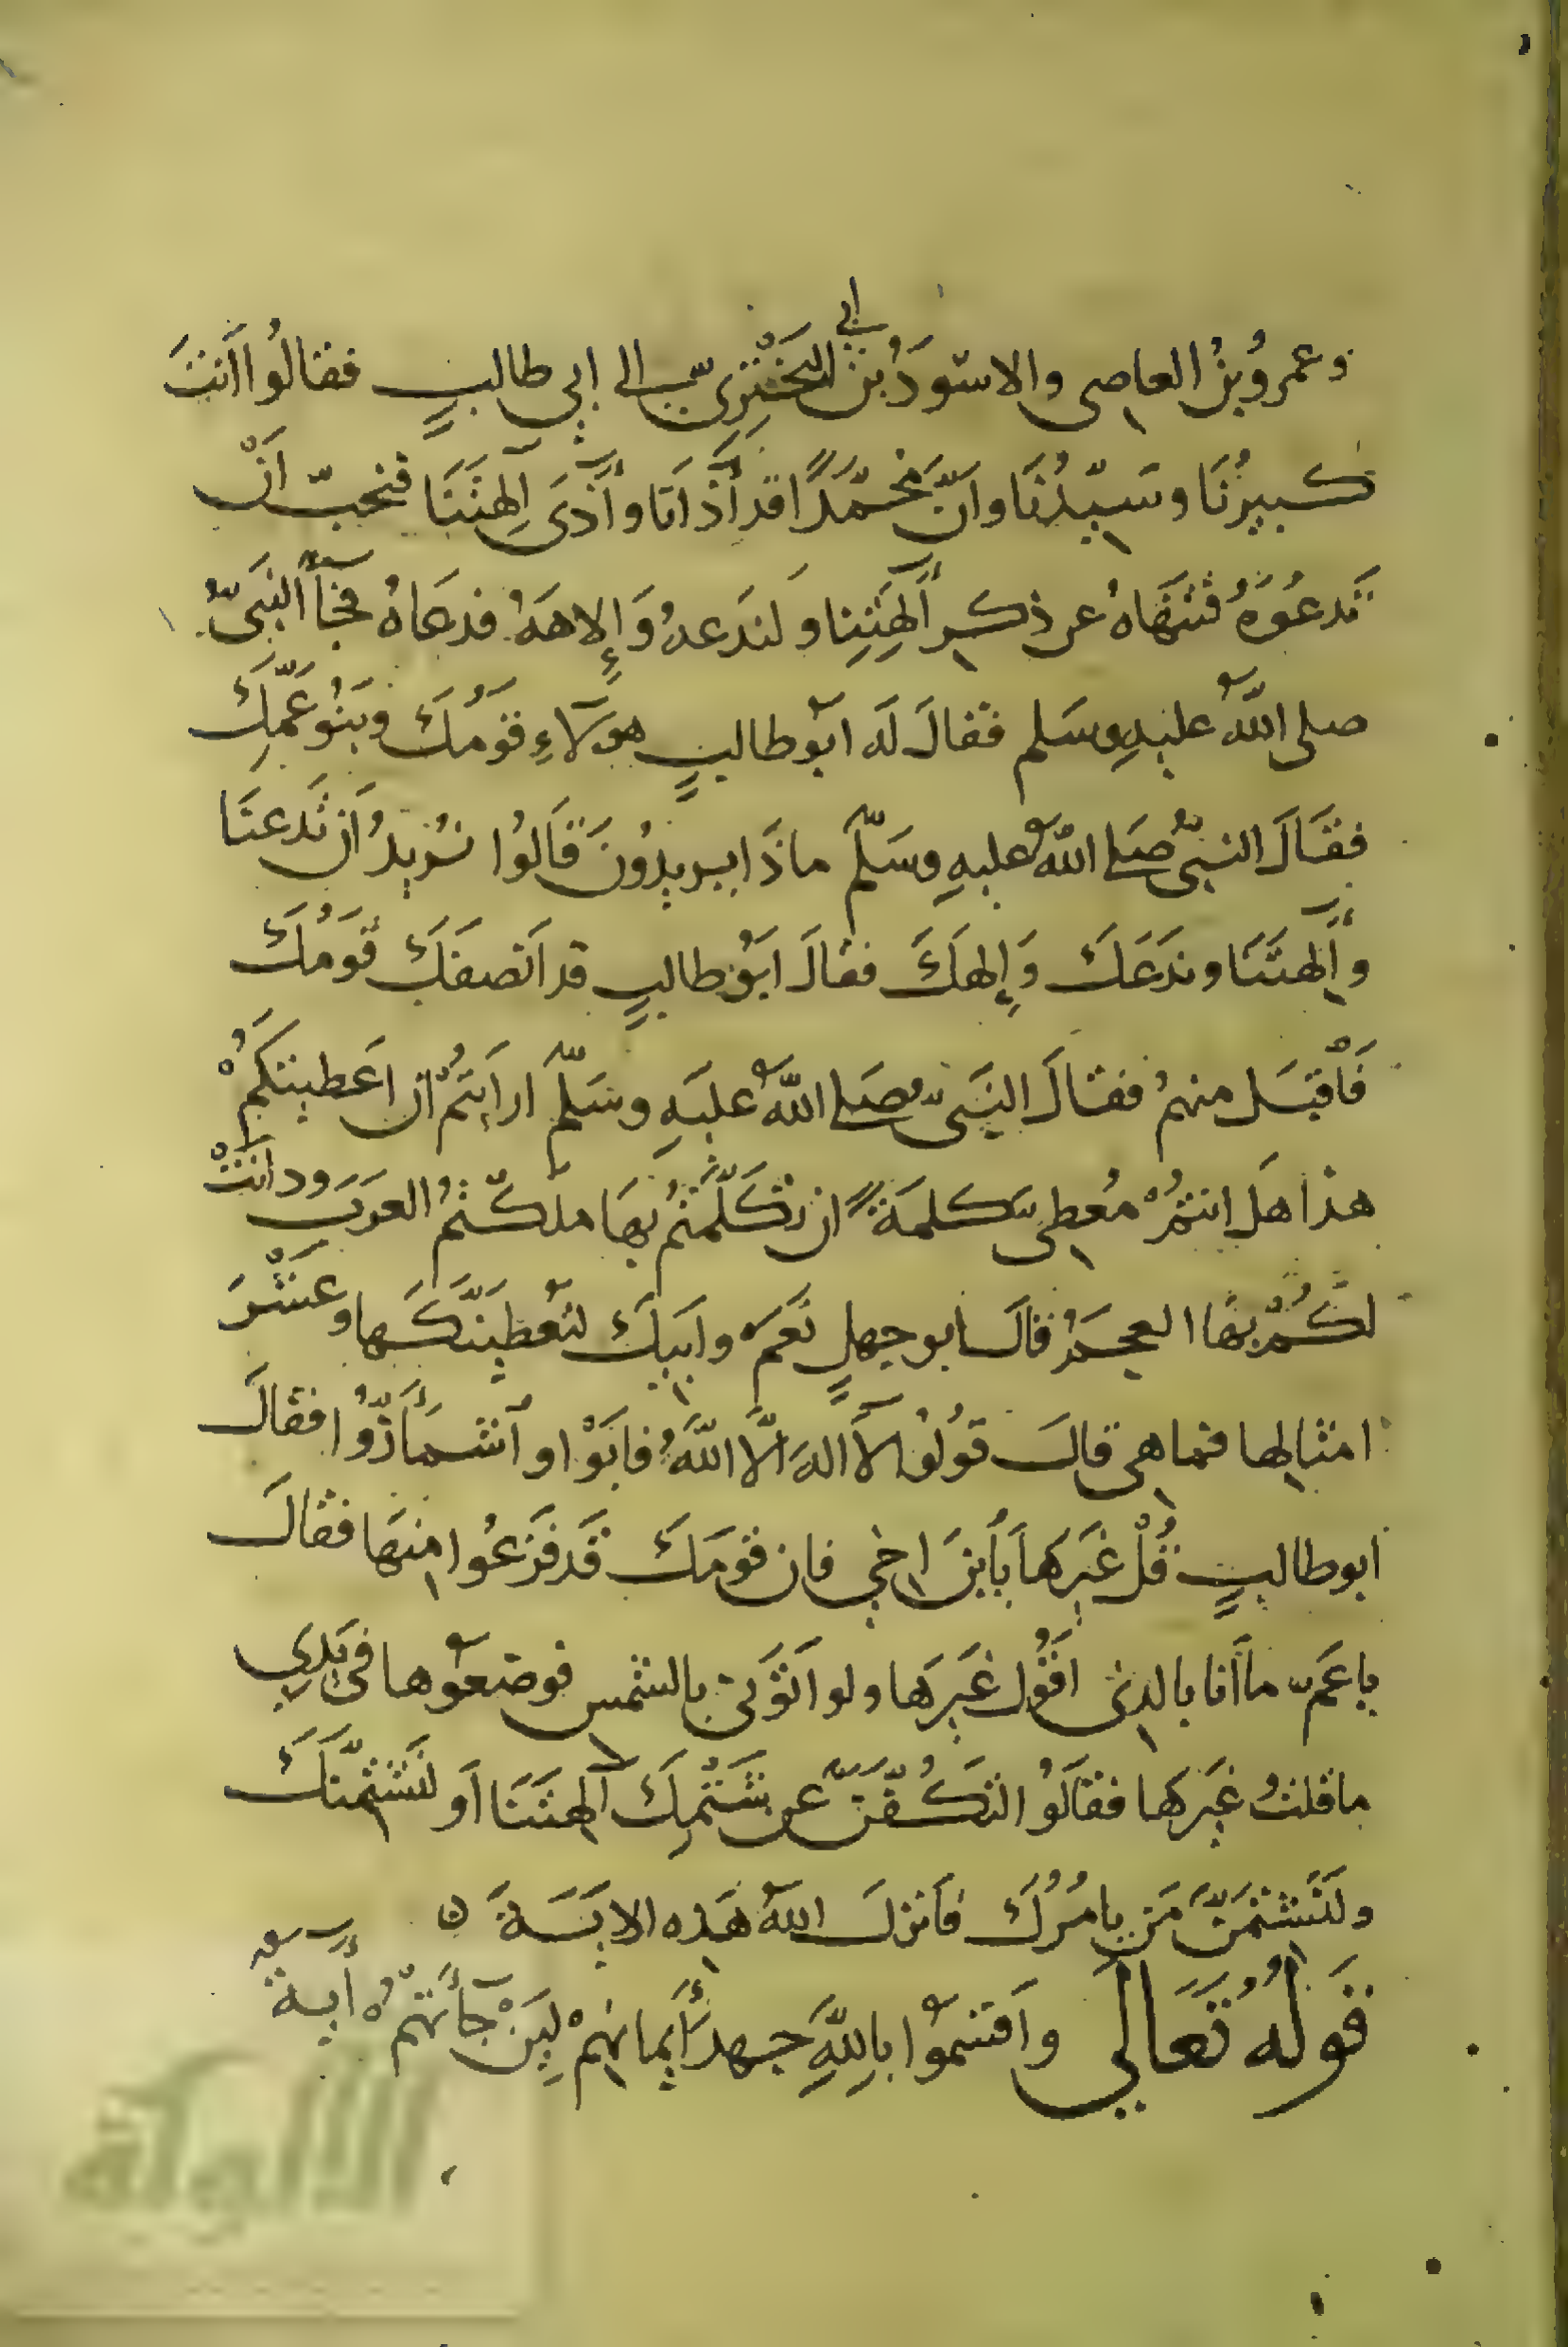 وعمروُ بنُ العاصِى والاسْوَدُ بن ابي البَخْتَرِىّ الى ابى طالبٍ فقالُوا اَنْتَ
كبيرُنَا وسَيّدُنَا وانّ محمّدًا قد أذَانَا وأذَى آلِهتَنَا فنحبّ اَنْ
تَدعُوَهُ فتَنْهَاهُ عن ذكرِ آلهَتِنِا ولندَعهُ وَإِلاهَهُ فدعَاهُ فجَآءَ النبَىّ
صلى اللّهُ عليهِ وسَلم فقالَ لَه ابُو طالبٍ هولآءِ قومُكَ وبَنُو عَمِّكَ
فقَالَ النبىُّ صَلى اللّهُ عليهِ وسَلّم ماذَا يريدُونَ قَالوُا نُريدُ اَن تَدَعنَا
وآلهتَنَا وندَعَكَ وَإِلهكَ فقالَ ابَوُ طالبٍ قد اَنصفَكَ قَومُكَ
فَاْقبَل منهمُ فقالَ النبَىُّ صَلى اللّهُ عليَهِ وسَلّم اراَيتُمْ ان اعَطيتكُمْ
هذا هَل انتمُ مُعطِىّ كلمَةً ان تكَلّمتُم بهَا ملكتُم العَرَبَ ودانَتْ
لكُمْ بهَا العجَمُ قالَ ابو جهلٍ نَعَم وابَيِكَ لنُعطيَنّكَها وعَشْرَ
امثالِها فما هِى قالَ قوُلُوْا لآ اَلهَ الّا اللّهُ فابَوْا واشمَأزّوُا فقالَ
ابوطالبٍ قُلْ غيَرَهَا يَاْبنَ اخِي فان قومَكَ قَد فَزعُوا مِنهَا فقالَ
ياعَمّ ما اَنا بالذِى اقَوُل غَيرَها ولو اتَوُنى بالشمسِ فوضعُوها فى يَدِي
ما قلتُ غيَرهَا فقالَوُا لتَكُفّنّ عن شَتْمِكَ آلهتَنَا اَو لنَشتُمنّكَ
ولنَشتمَنّ مَن يامُرُكَ فاَنزلَ اللّهُ هَذِه الايَةَ ٥
قَولُهُ تَعَالَى واَقسَمُوا بِاللّهِ جَهدَ أيمانِهمْ ليِنْ جَآءَتهُمْ آيةٌ